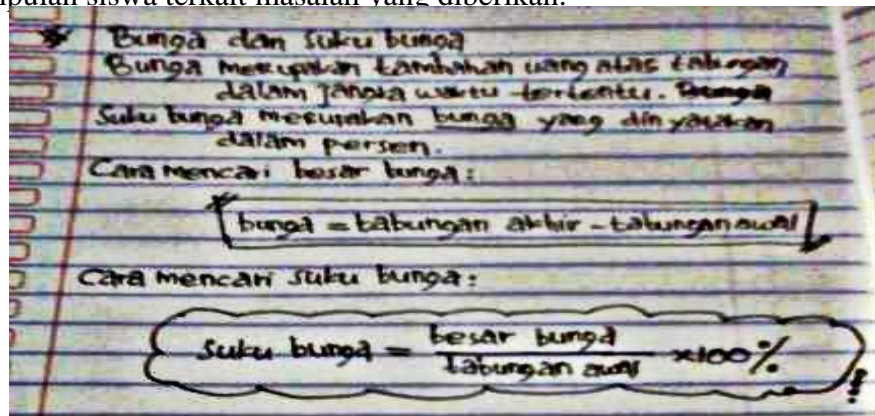 simpulan siswa terkait masalah yang diberikan.
* Bunga dan suku bunga
Bunga merupakan tambahan uang atas tabungan
dalam jangka waktu tertentu.
Suku bunga merupakan bunga yang dinyatakan
dalam persen.
Cara mencari besar bunga:
bunga = tabungan akhir - tabungan awal
Cara mencari suku bunga:
suku bunga = besar bunga / tabungan awal x100%